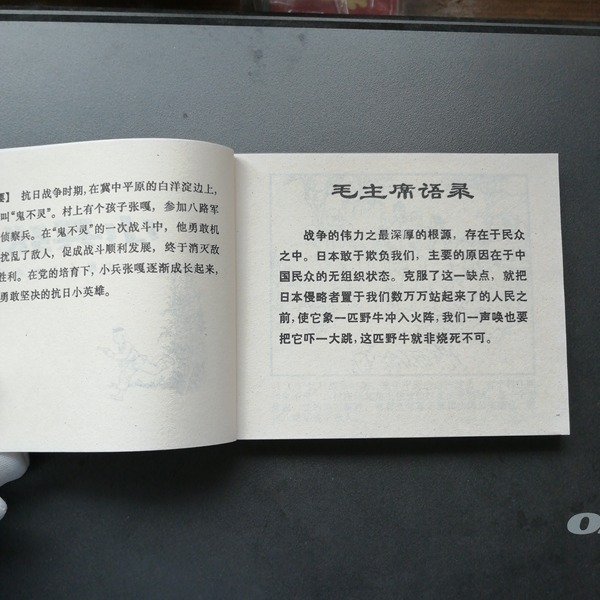 要】 抗日战争时期，在冀中平原的白洋淀边上，
叫“鬼不灵”。村上有个孩子张嘎，参加八路军
侦察兵。在“鬼不灵”的一次战斗中，他勇敢机
扰乱了敌人，促成战斗顺利发展，终于消灭敌
胜利。在党的培育下，小兵张嘎逐渐成长起来，
勇敢坚决的抗日小英雄。
毛主席语录
战争的伟力之最深厚的根源，存在于民众
之中。日本敢于欺负我们，主要的原因在于中
国民众的无组织状态。克服了这一缺点，就把
日本侵略者置于我们数万万站起来了的人民之
前，使它象一匹野牛冲入火阵，我们一声唤也要
把它吓一大跳，这匹野牛就非烧死不可。